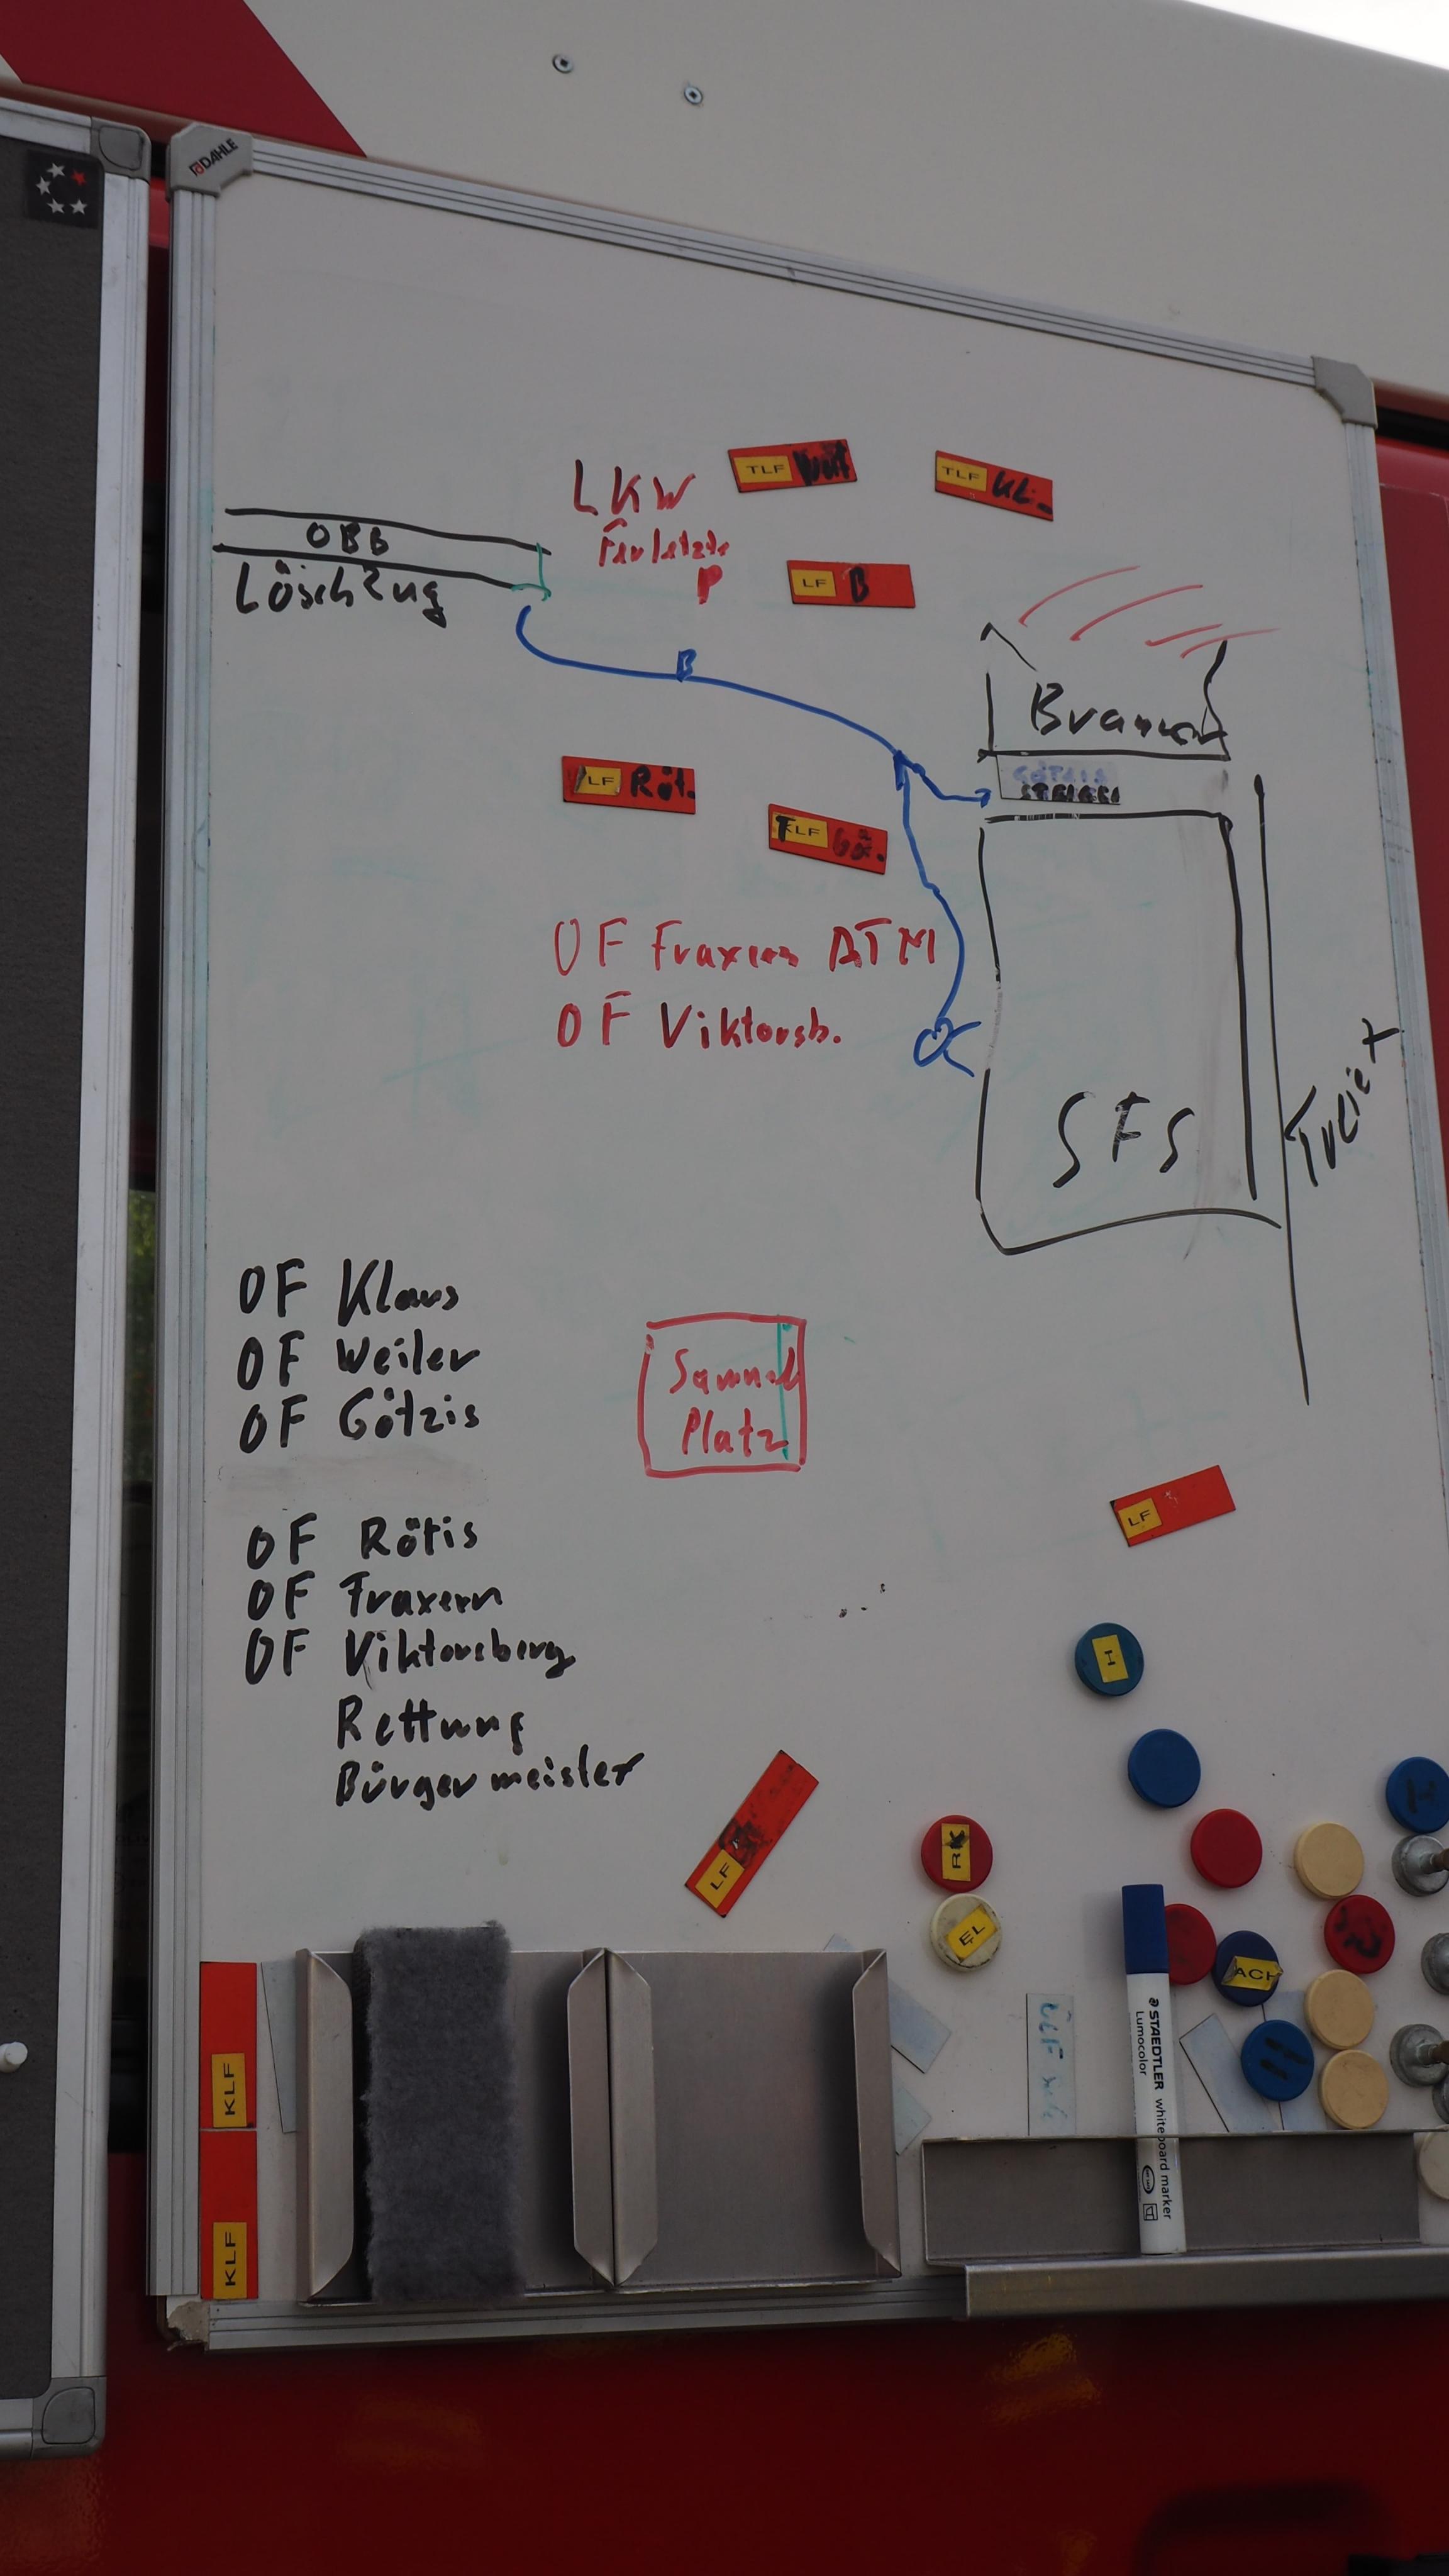 DAHLE
LKW
TLF
TLF KL.
ÖBB
Löschzug
Verletzte
P
LF B
B
Brand
LF Röt.
TKLF Gö.
OF Fraxern ATM
OF Viktorsb.
SFS
OF Klaus
OF Weiler
OF Götzis
Sammel
Platz
OF Rötis
OF Fraxern
OF Viktorsberg
Rettung
Bürgermeister
LF
LF
H
RK
EL
ACH
KLF
KLF
STAEDTLER
Lumocolor
whiteboard marker